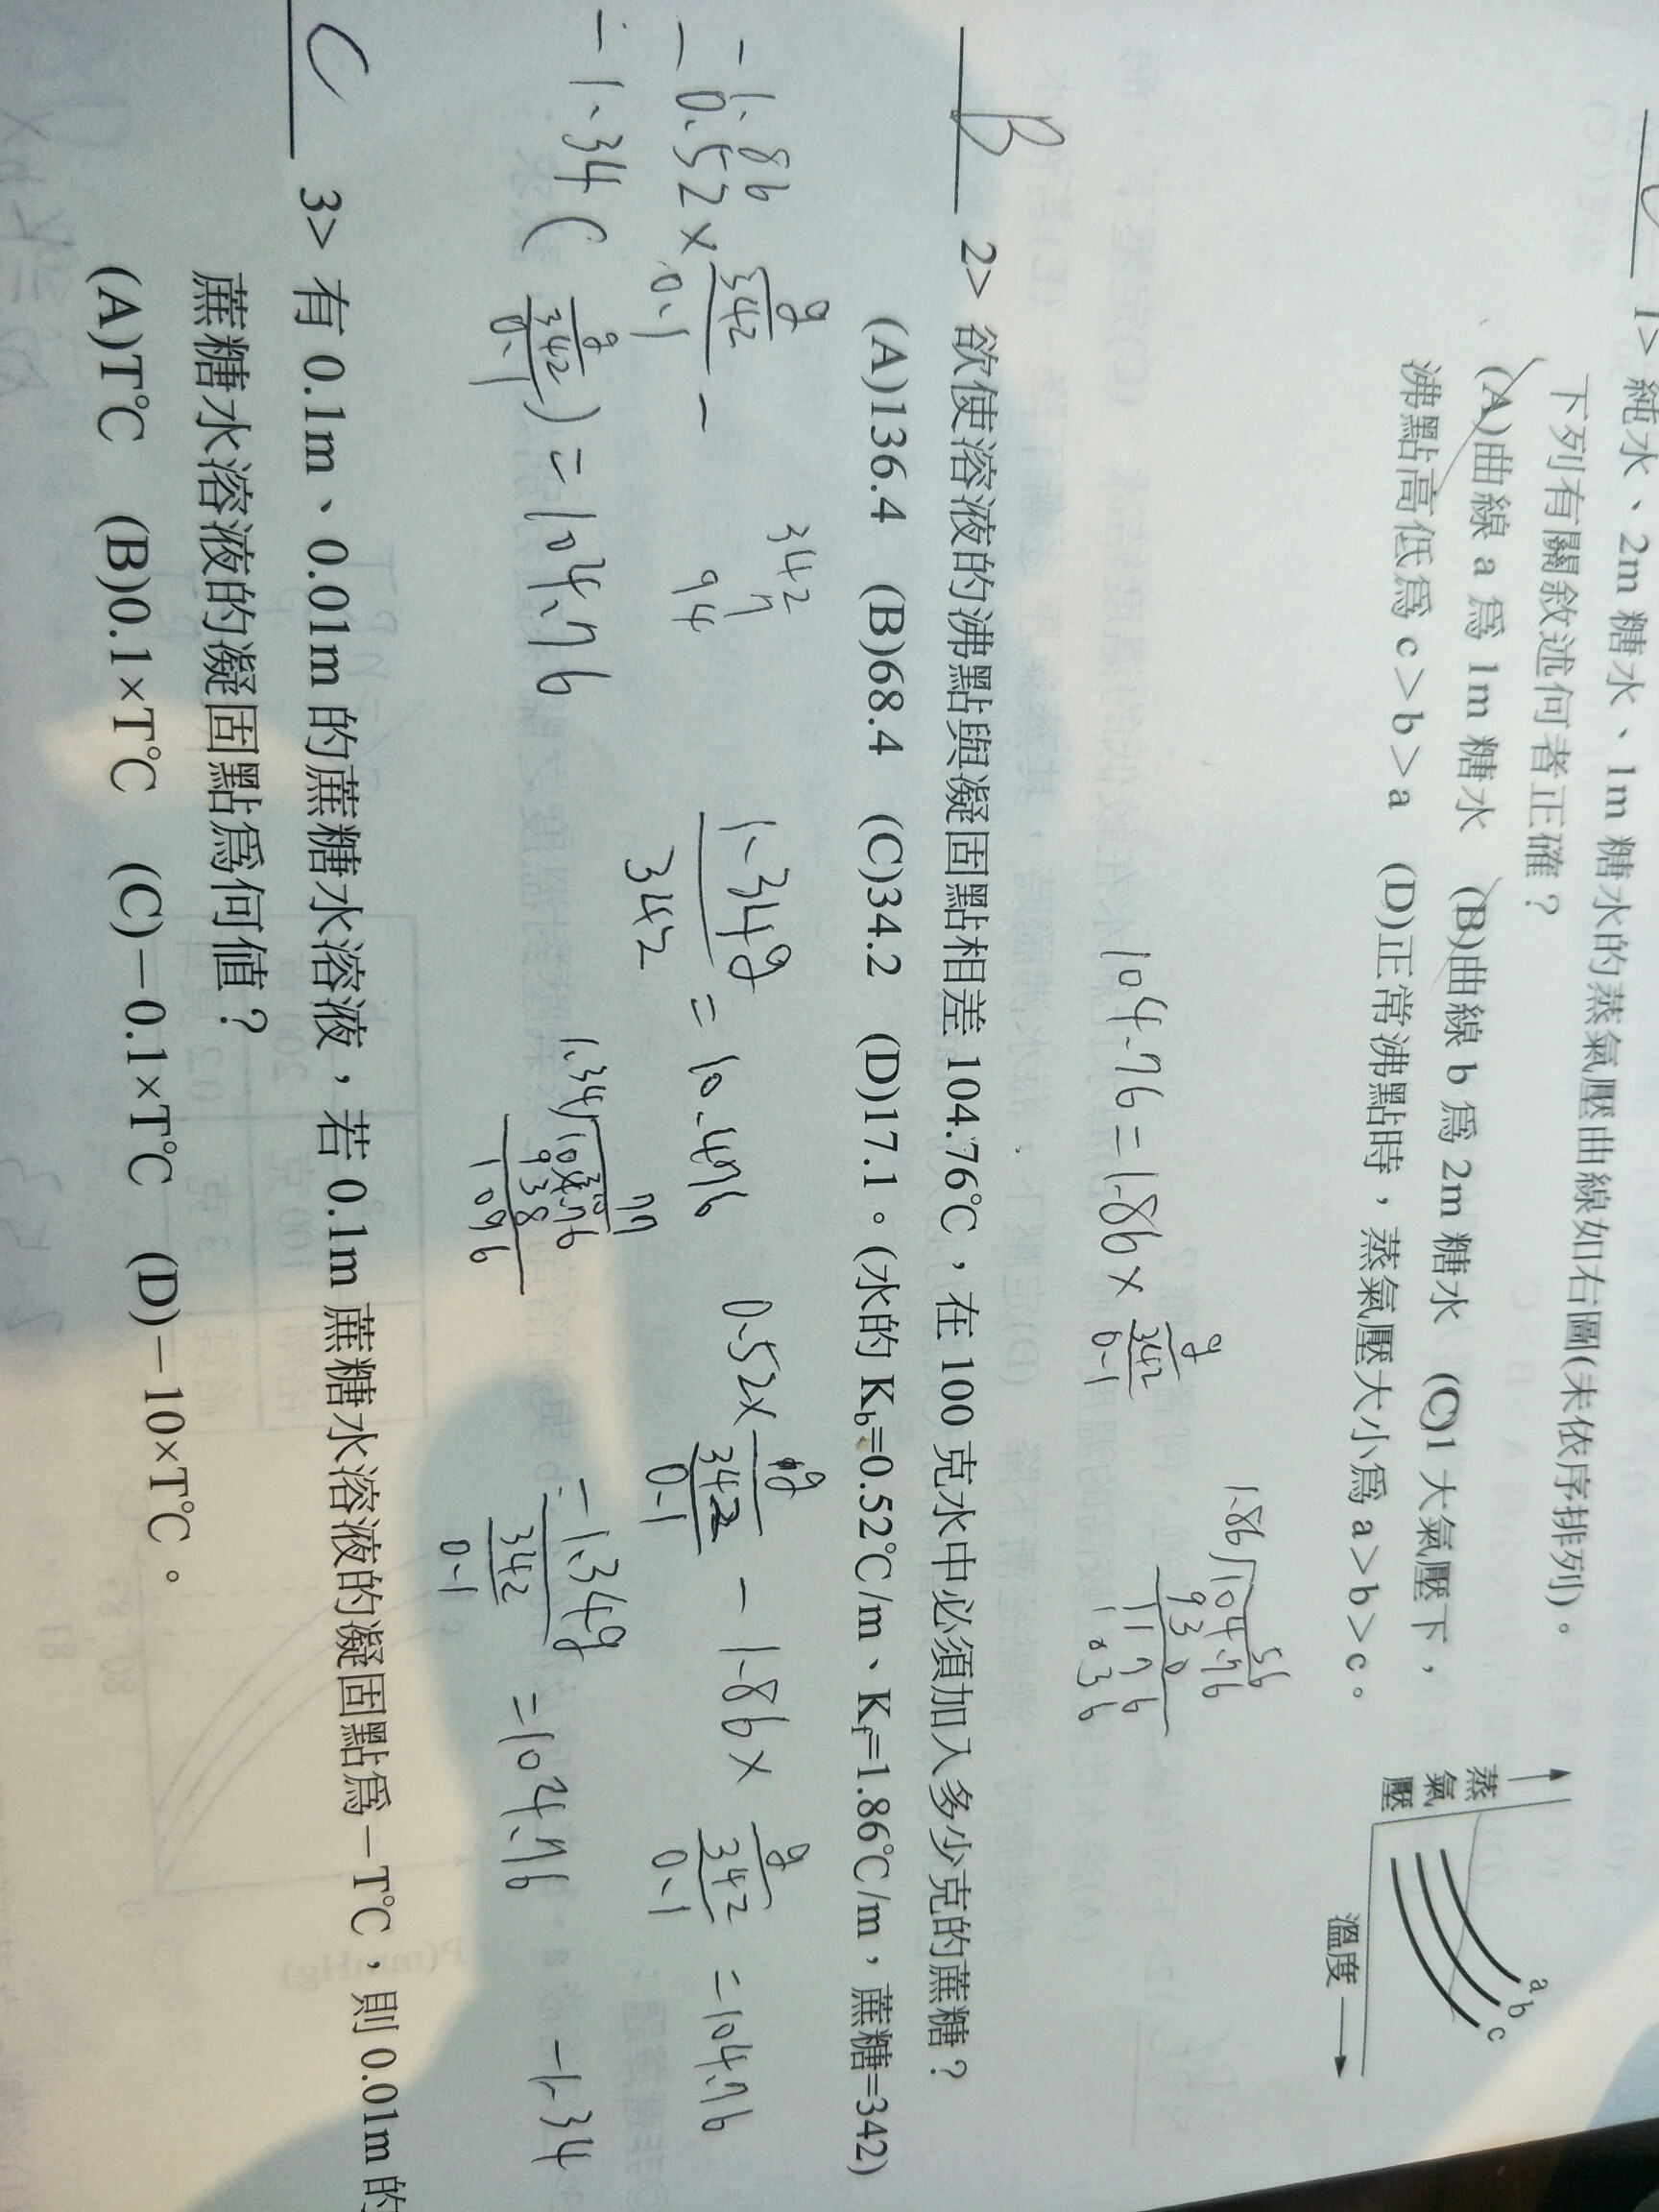 1> 純水、2m 糖水、1m 糖水的蒸氣壓曲線如右圖(未依序排列)。
下列有關敘述何者正確？
(A)曲線 a 為 1m 糖水 (B)曲線 b 為 2m 糖水 (C)1 大氣壓下，
沸點高低為 c＞b＞a (D)正常沸點時，蒸氣壓大小為 a＞b＞c。
蒸氣壓
a
b
c
溫度
104.76=1.86×
g
342
0.1
56
1.86
104.76
930
1176
036
B 2> 欲使溶液的沸點與凝固點相差 104.76℃，在 100 克水中必須加入多少克的蔗糖？
(A)136.4 (B)68.4 (C)34.2 (D)17.1。(水的 Kb=0.52℃/m、Kf=1.86℃/m，蔗糖=342)
-1.86
-0.52×
g
342
0.1
-
342
7
94
1.34g
342
=10.476
0.52×
g
342
0.1
-1.86×
g
342
0.1
=104.76
-1.34(
g
342
0.1
)=104.76
1.34
77
938
1096
-1.34g
342
0.1
=104.76
-1.34
C 3> 有 0.1m、0.01m 的蔗糖水溶液，若 0.1m 蔗糖水溶液的凝固點為－T℃，則 0.01m 的
蔗糖水溶液的凝固點為何值？
(A)T℃ (B)0.1×T℃ (C)－0.1×T℃ (D)－10×T℃。